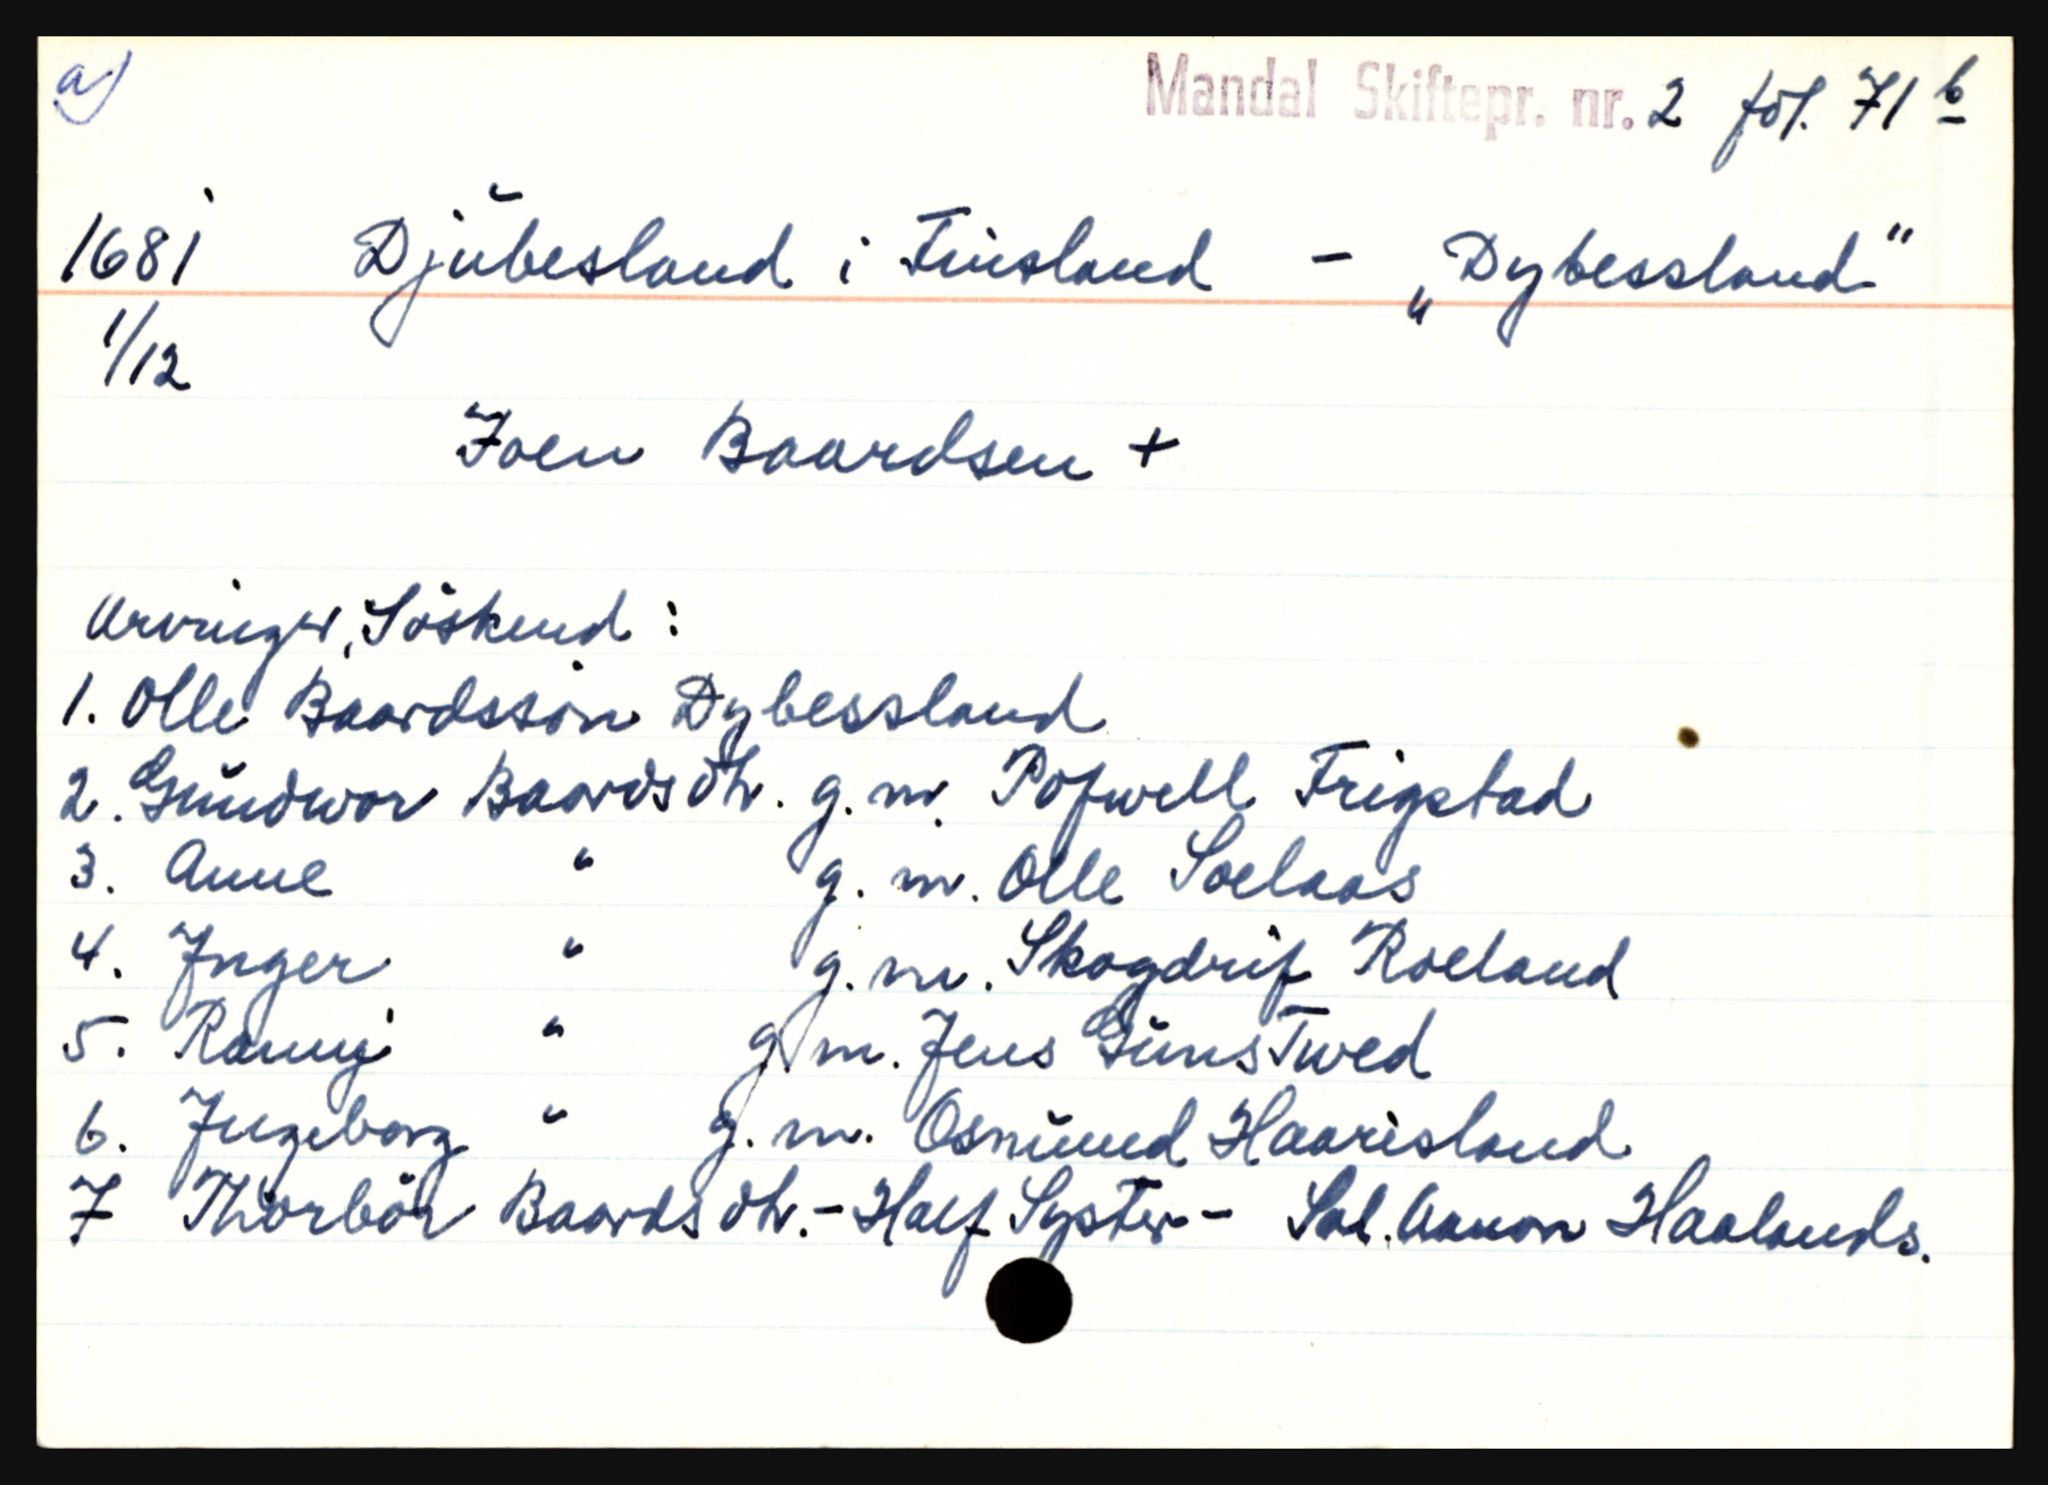 a)
Mandal Skiftepr. nr. 2 fol. 71 b
1681 Djubesland i Finsland - „Dybessland"
1/12
Joen Baardsen +
Arvinger, Söskend :
1. Olle Baardssön Dybessland
2. Gundwor Baardsdtr. g. m. Pofwell Frigstad
3. Anne " g. m. Olle Soelaas
4. Inger " g. m. Skogdrif Roeland
5. Ranni " g. m. Jens GunsTwed
6. Ingeborg " g. m. Osmund Haarisland
7 Thorbör Baardsdtr. - Half Syster - Sal. Aanon Haalands.